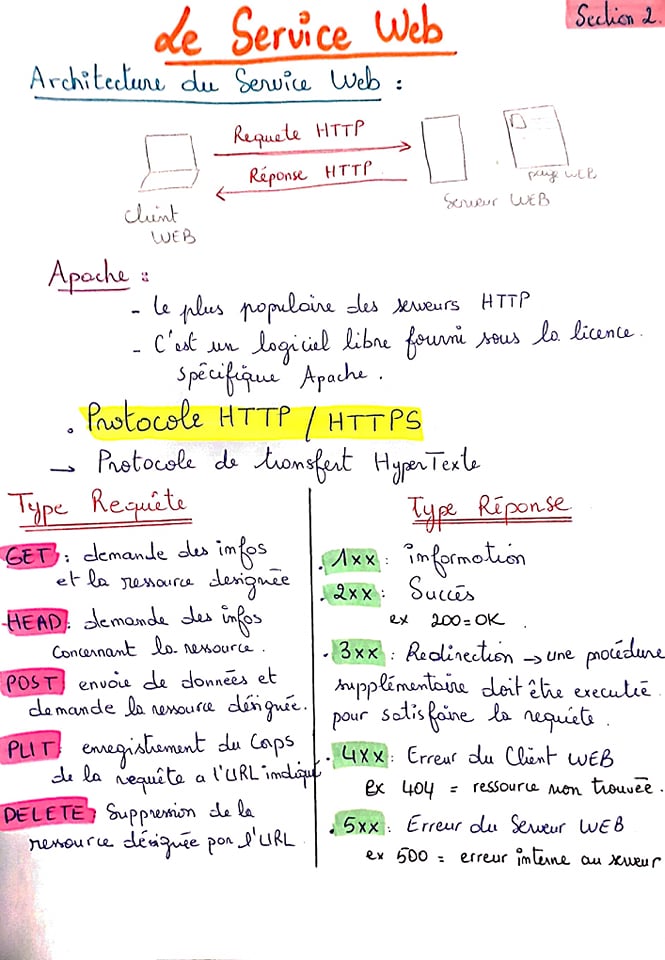 Le Service Web
Section 2.
Architecture du Service Web :
Requete HTTP
Réponse HTTP
Client
WEB
page WEB
Serveur WEB
Apache :
- Le plus populaire des serveurs HTTP
- C'est un logiciel libre fourni sous la licence.
spécifique Apache.
. Protocole HTTP / HTTPS
→ Protocole de transfert HyperTexte
Type Requête
GET : demande des infos
et la ressource designée
HEAD : demande des infos
Concernant la ressource.
POST envoie de données et
demande la ressource désignée.
PUT : enregistrement du Corps
de la requête a l'URL indiqué
DELETE : Suppression de la
ressource désignée par l'URL
Type Réponse
. 1xx : information
. 2xx : Succés
ex 200=OK.
. 3xx : Redirection → une procédure
supplémentaire doit être executée.
pour satisfaire la requiéte.
. 4xx : Erreur du Client WEB
Ex 404 = ressource non trouvée.
. 5xx : Erreur du Serveur WEB
ex 500 = erreur interne au serveur